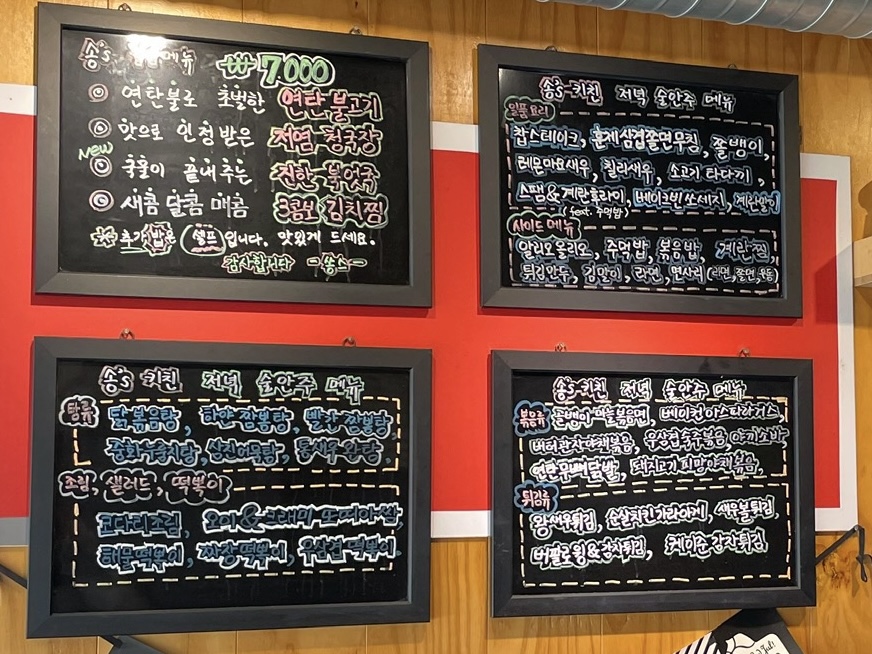 송's 메뉴 ₩7,000
연탄불로 초벌한 연탄 불고기
맛으로 인정받은 저염 청국장
NEW
국물이 끝내주는 진한 북엇국
새콤 달콤 매콤 3콤보 김치찜
추가밥은 셀프입니다. 맛있게 드세요.
감사합니다 -송's-
송's 키친 저녁 술안주 메뉴
일품요리
찹스테이크, 훈제삼겹쫄면무침, 쫄뱅이,
레몬마요새우, 칠리새우, 소고기 타다끼,
스팸&계란후라이, 베이크빈 쏘세지, 계란말이
(feat. 주먹밥)
사이드 메뉴
알리오올리오, 주먹밥, 볶음밥, 계란찜,
튀김만두, 김말이, 라면, 면사리(라면,쫄면,우동)
송's 키친 저녁 술안주 메뉴
탕류
닭볶음탕, 하얀 짬뽕탕, 빨간 짬뽕탕,
중화누룽지탕, 삼진어묵탕, 통새우완탕,
조림, 샐러드, 떡볶이
코다리조림, 오이&크래미 또띠아쌈,
해물떡볶이, 짜장떡볶이, 우삼겹 떡볶이.
송's 키친 저녁 술안주 메뉴
볶음류
골뱅이마늘볶음면, 베이컨아스파라거스
버터관자야채볶음, 우삼겹숙주볶음, 야끼소바
연탄무뼈닭발, 돼지고기 피망야채볶음,
튀김류
왕새우튀김, 순살치킨가라아게, 새우볼튀김,
버팔로윙&감자튀김, 케이준 감자튀김,